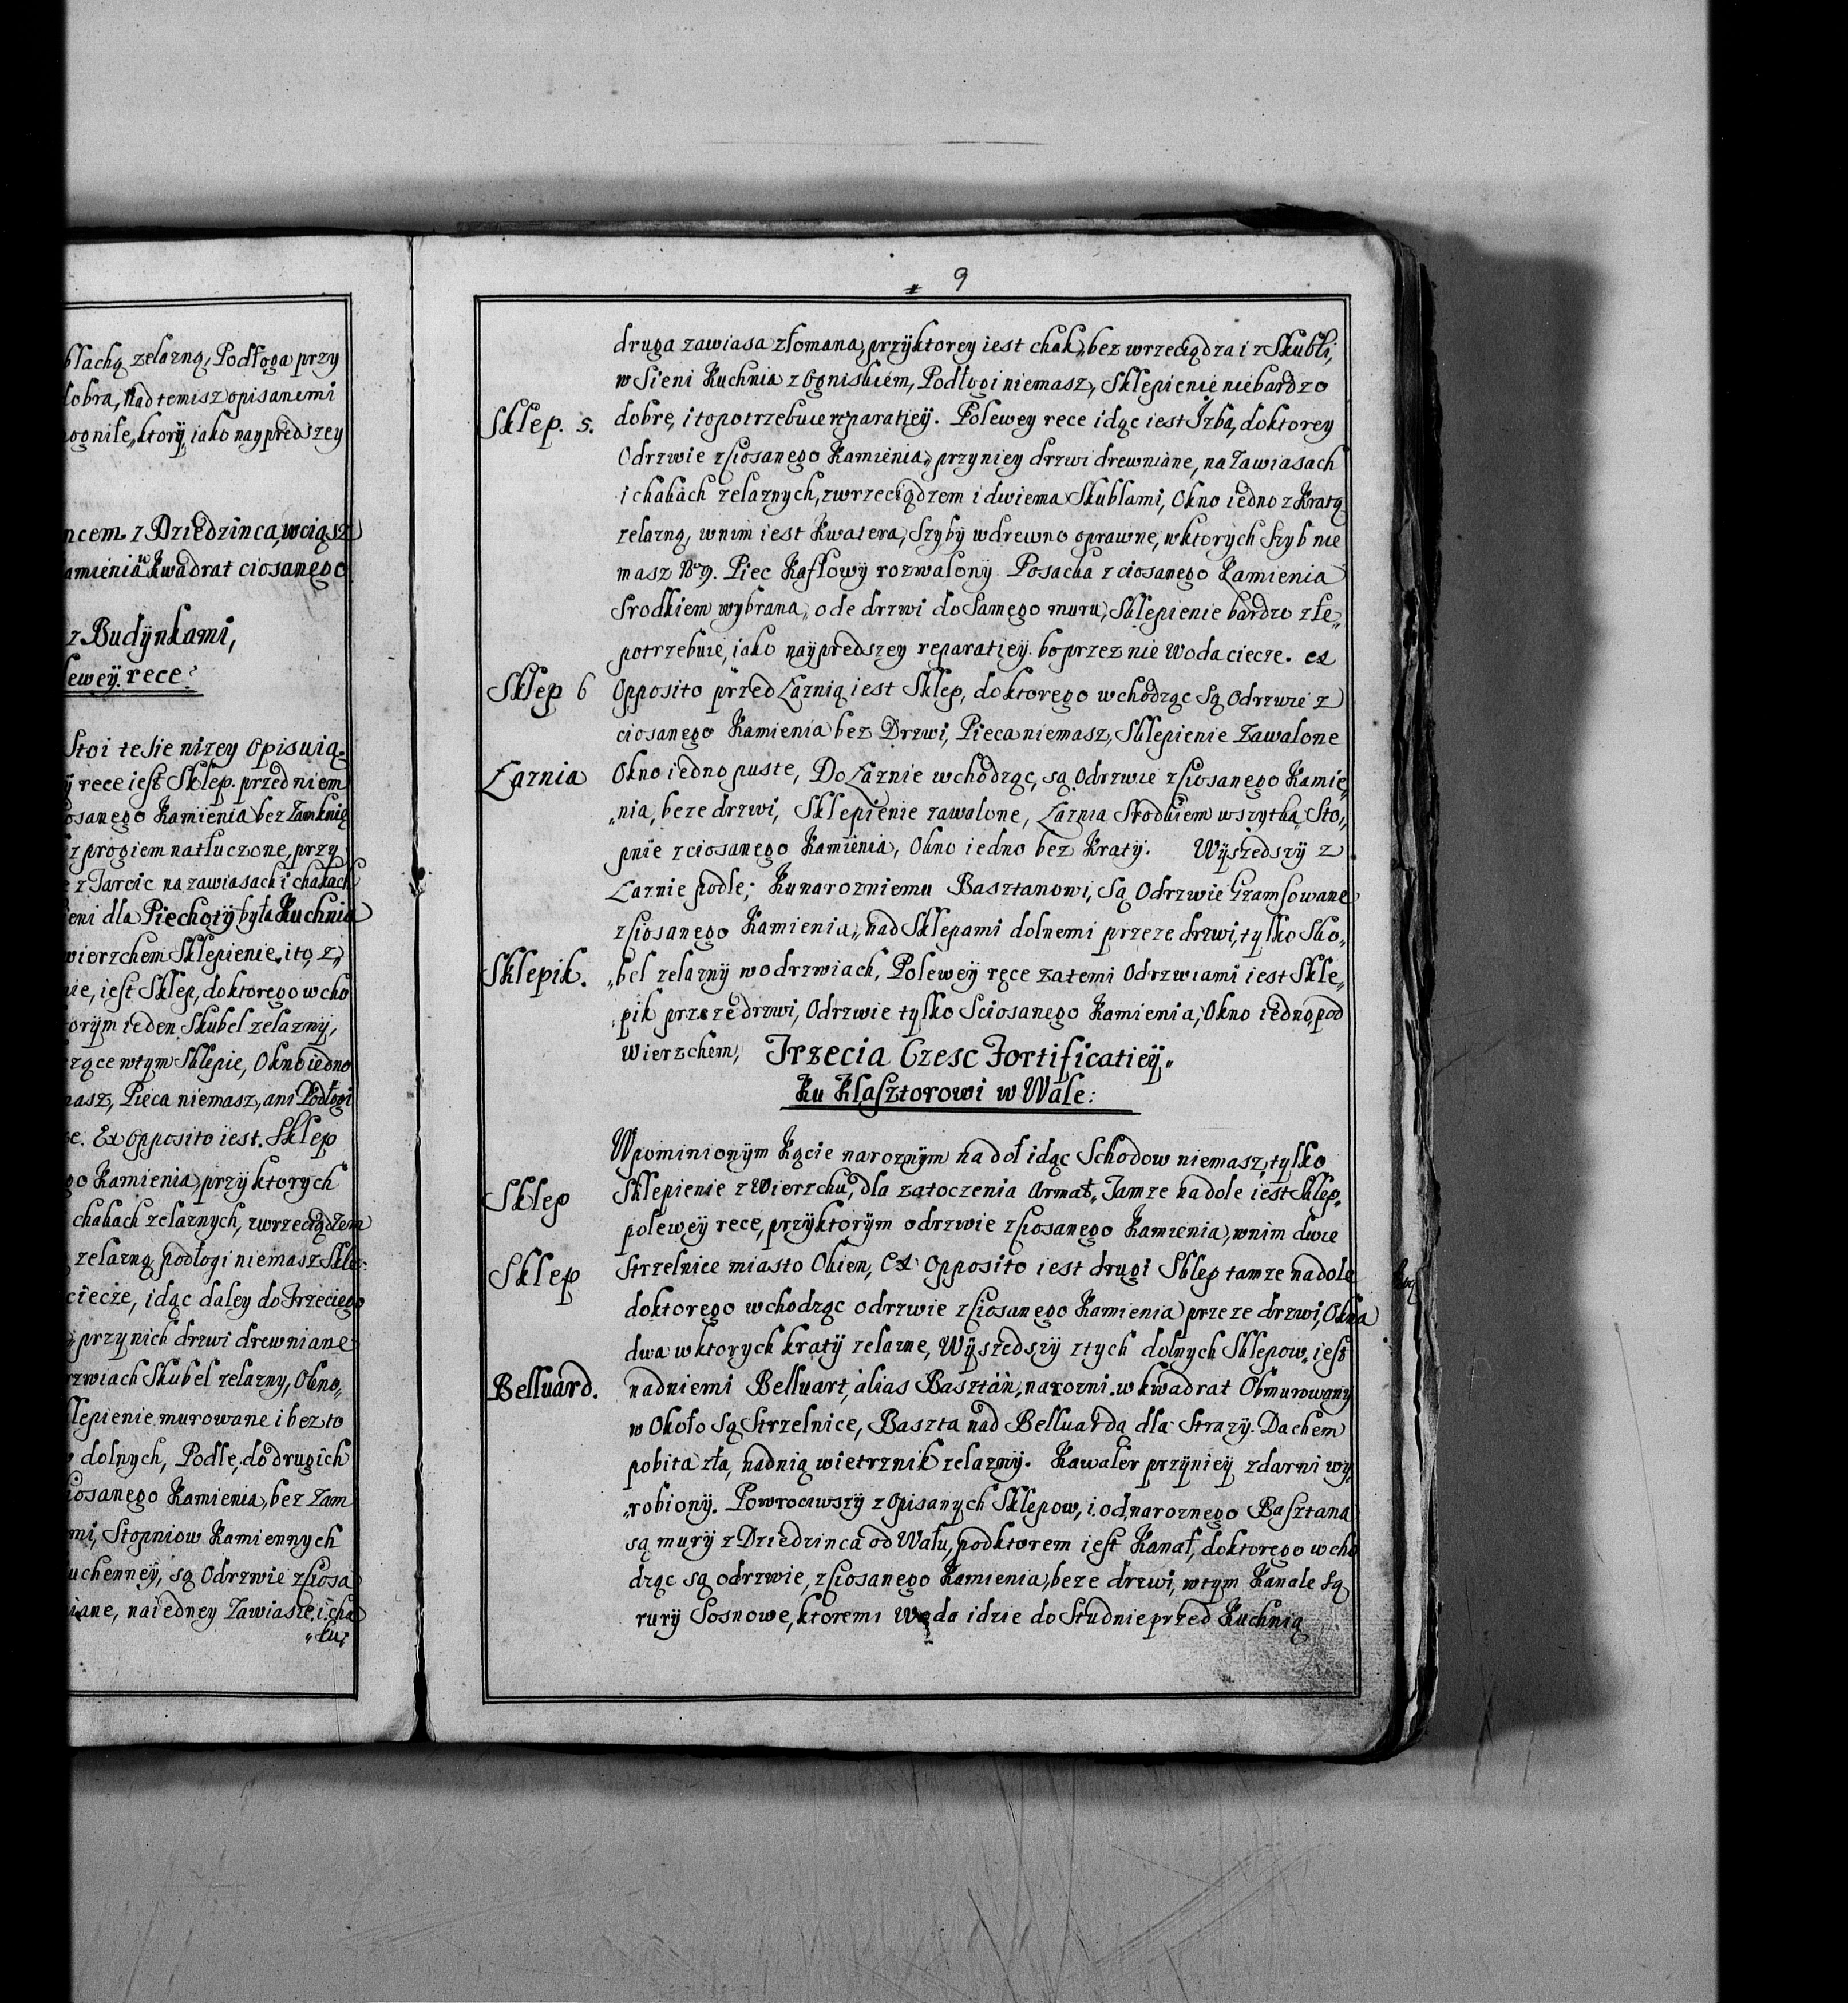 blachą zelazną, Podłoga przy
dobra, nad temisz opisanemi
ogniłe, ktorÿ iako naypredszey
ncem z Dziedzinca, wciąsz
amienia w Kwadrat ciosanego
z Budÿnkami,
lewey rece
Stoi te sie nizey opisuią.
ÿ rece iest Sklep. przed niem
osanego Kamienia bez Zamknię
z progiem natłuczone, przy
z Tarcic na zawiasach i chakach
ieni dla Piechotÿ była Kuchnia
wierzchem Sklepienie, ito, z
nie, iest Sklep, doktorego wcho
torÿm ieden Skubel zelaznÿ,
zące wtym Sklepie, Okno iedno
masz, Pieca niemasz, ani Podłogi
se. Ex opposito iest. Sklep
go Kamienia, przÿ ktorych
chakach zelaznych, zwrzeciądzem
zelazną, podłogi niemasz Skle
ciecze, idąc daley do Trzeciego
przynich drzwi drewniane
rzwiach Skubel zelazny, Okno
klepienie murowane i bez to
dolnych, Podle, do drugich
iosanego Kamienia, bez Zam
mi, Stopniow Kamiennych
uchenneÿ, są Odrzwie zciosa
niane, naiedney Zawiasie, i cha
„ku„
9
druga zawiasa złomana, przÿktorey iest chak, bez wrzeciądza i z Skubli,
w Sieni Kuchnia z Ogniskiem, Podłogi niemasz, Sklepienie niebardzo
Sklep. 5. dobre, itopotrzebuie reparatieÿ. Polewey rece idąc iest Izba, doktorey
Odrzwie zciosanego Kamienia, przyniey drzwi drewniane, na Zawiasach
i chakach zelaznych, zwrzeciądzem i dwiema Skublami, Okno iedno z Kratą
zelazną, wnim iest Kwatera, Szybÿ wdrewno oprawne, wktorych Szyb nie
masz No 9. Piec Kaflowÿ rozwalonÿ. Posacka z ciosanego Kamienia
Srodkiem wybrana, ode drzwi do Samego muru, Sklepienie bardzo złe„
potrzebuie, iako naÿpredszey reparatieÿ. bo przez nie Woda ciecze. ex
Sklep 6 Opposito przed Łaznią iest Sklep, doktorego wchodząc Są Odrzwie z
ciosanego Kamienia bez Drzwi, Pieca niemasz, Sklepienie Zawalone
Łaznia Okno iedno puste, Do Łaznie wchodząc, są Odrzwie zciosanego Kamie„
„nia, beze drzwi, Sklepienie zawalone, Łaznia Srodkiem wszytka, Sto„
pnie zciosanego Kamienia, Okno iedno bez Kratÿ. Wÿszedszÿ z
Łaznie podle; Kunarozniemu Basztanowi, Są Odrzwie Gzamsowane
zciosanego Kamienia, nad Sklepami dolnemi przeze drzwi, tylko Sko„
Sklepik. „bel zelaznÿ wodrzwiach, Poleweÿ ręce zatemi Odrzwiami iest Skle„
pik przeze drzwi, Odrzwie tylko Sciosanego Kamienia, Okno iedno, pod
wierzchem, Trzecia Czesc Fortificatieÿ„
Ku Klasztorowi w Wale:
Wpominionÿm Kącie naroznÿm na doł idąc Schodow niemasz, tylko
Sklep Sklepienie z Wierzchu, dla zatoczenia Armat, Tamze na dole iest Sklep.
poleweÿ rece, przÿktorÿm odrzwie zciosanego Kamienia, wnim dwie
Sklep Strzelnice miasto Okien, Ex opposito iest drugi Sklep tamze nadole
doktorego wchodząc odrzwie zciosanego Kamienia przeze drzwi, Okna
dwa wktorych kratÿ zelazne, Wÿszedszÿ ztych dolnych Sklepow, iest
Belluard. nadniemi Belluart, alias Basztan, narozni wkwadrat Obmurowany
w Około Są Strzelnice, Baszta nad Belluardą dla Strazÿ. Dachem
pobita zła, nadnią wietrznik zelaznÿ. Kawaler przÿnieÿ zdarni wy
„robionÿ. Powrociwszÿ z opisanych Sklepow, i od naroznego Basztana
są murÿ z Dziedzinca od Wału, podktorem iest Kanał, doktorego wcho
dząc są odrzwie, zciosanego Kamienia, beze drzwi, wtym Kanale Są
rurÿ Sosnowe, ktoremi Woda idzie do Studnie przed Kuchnią